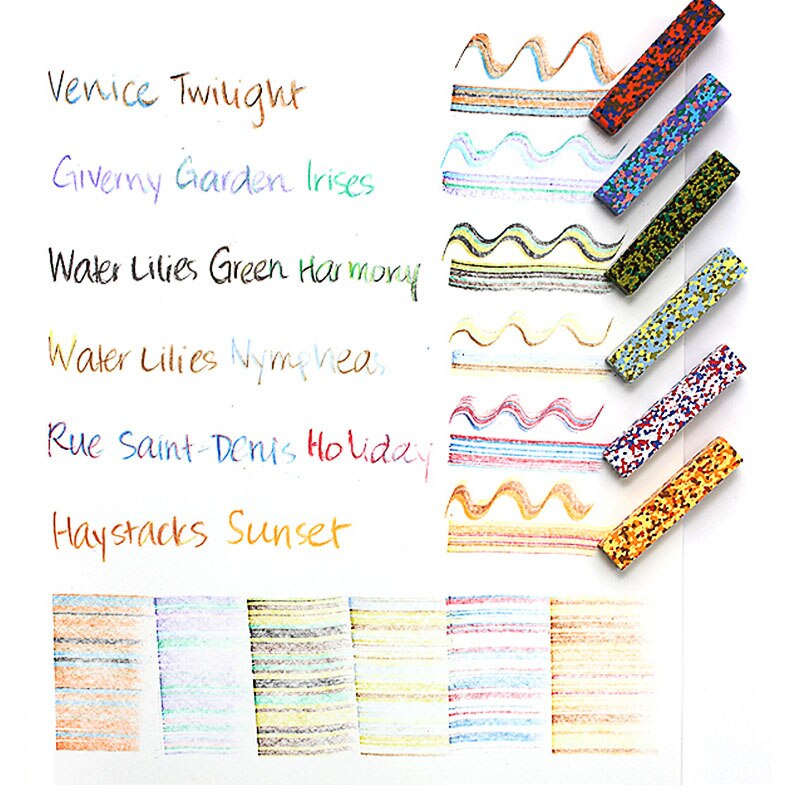 Venice Twilight
Giverny Garden Irises
Water Lilies Green Harmony
Water Lilies Nympheas
Rue Saint-Denis Holiday
Haystacks Sunset